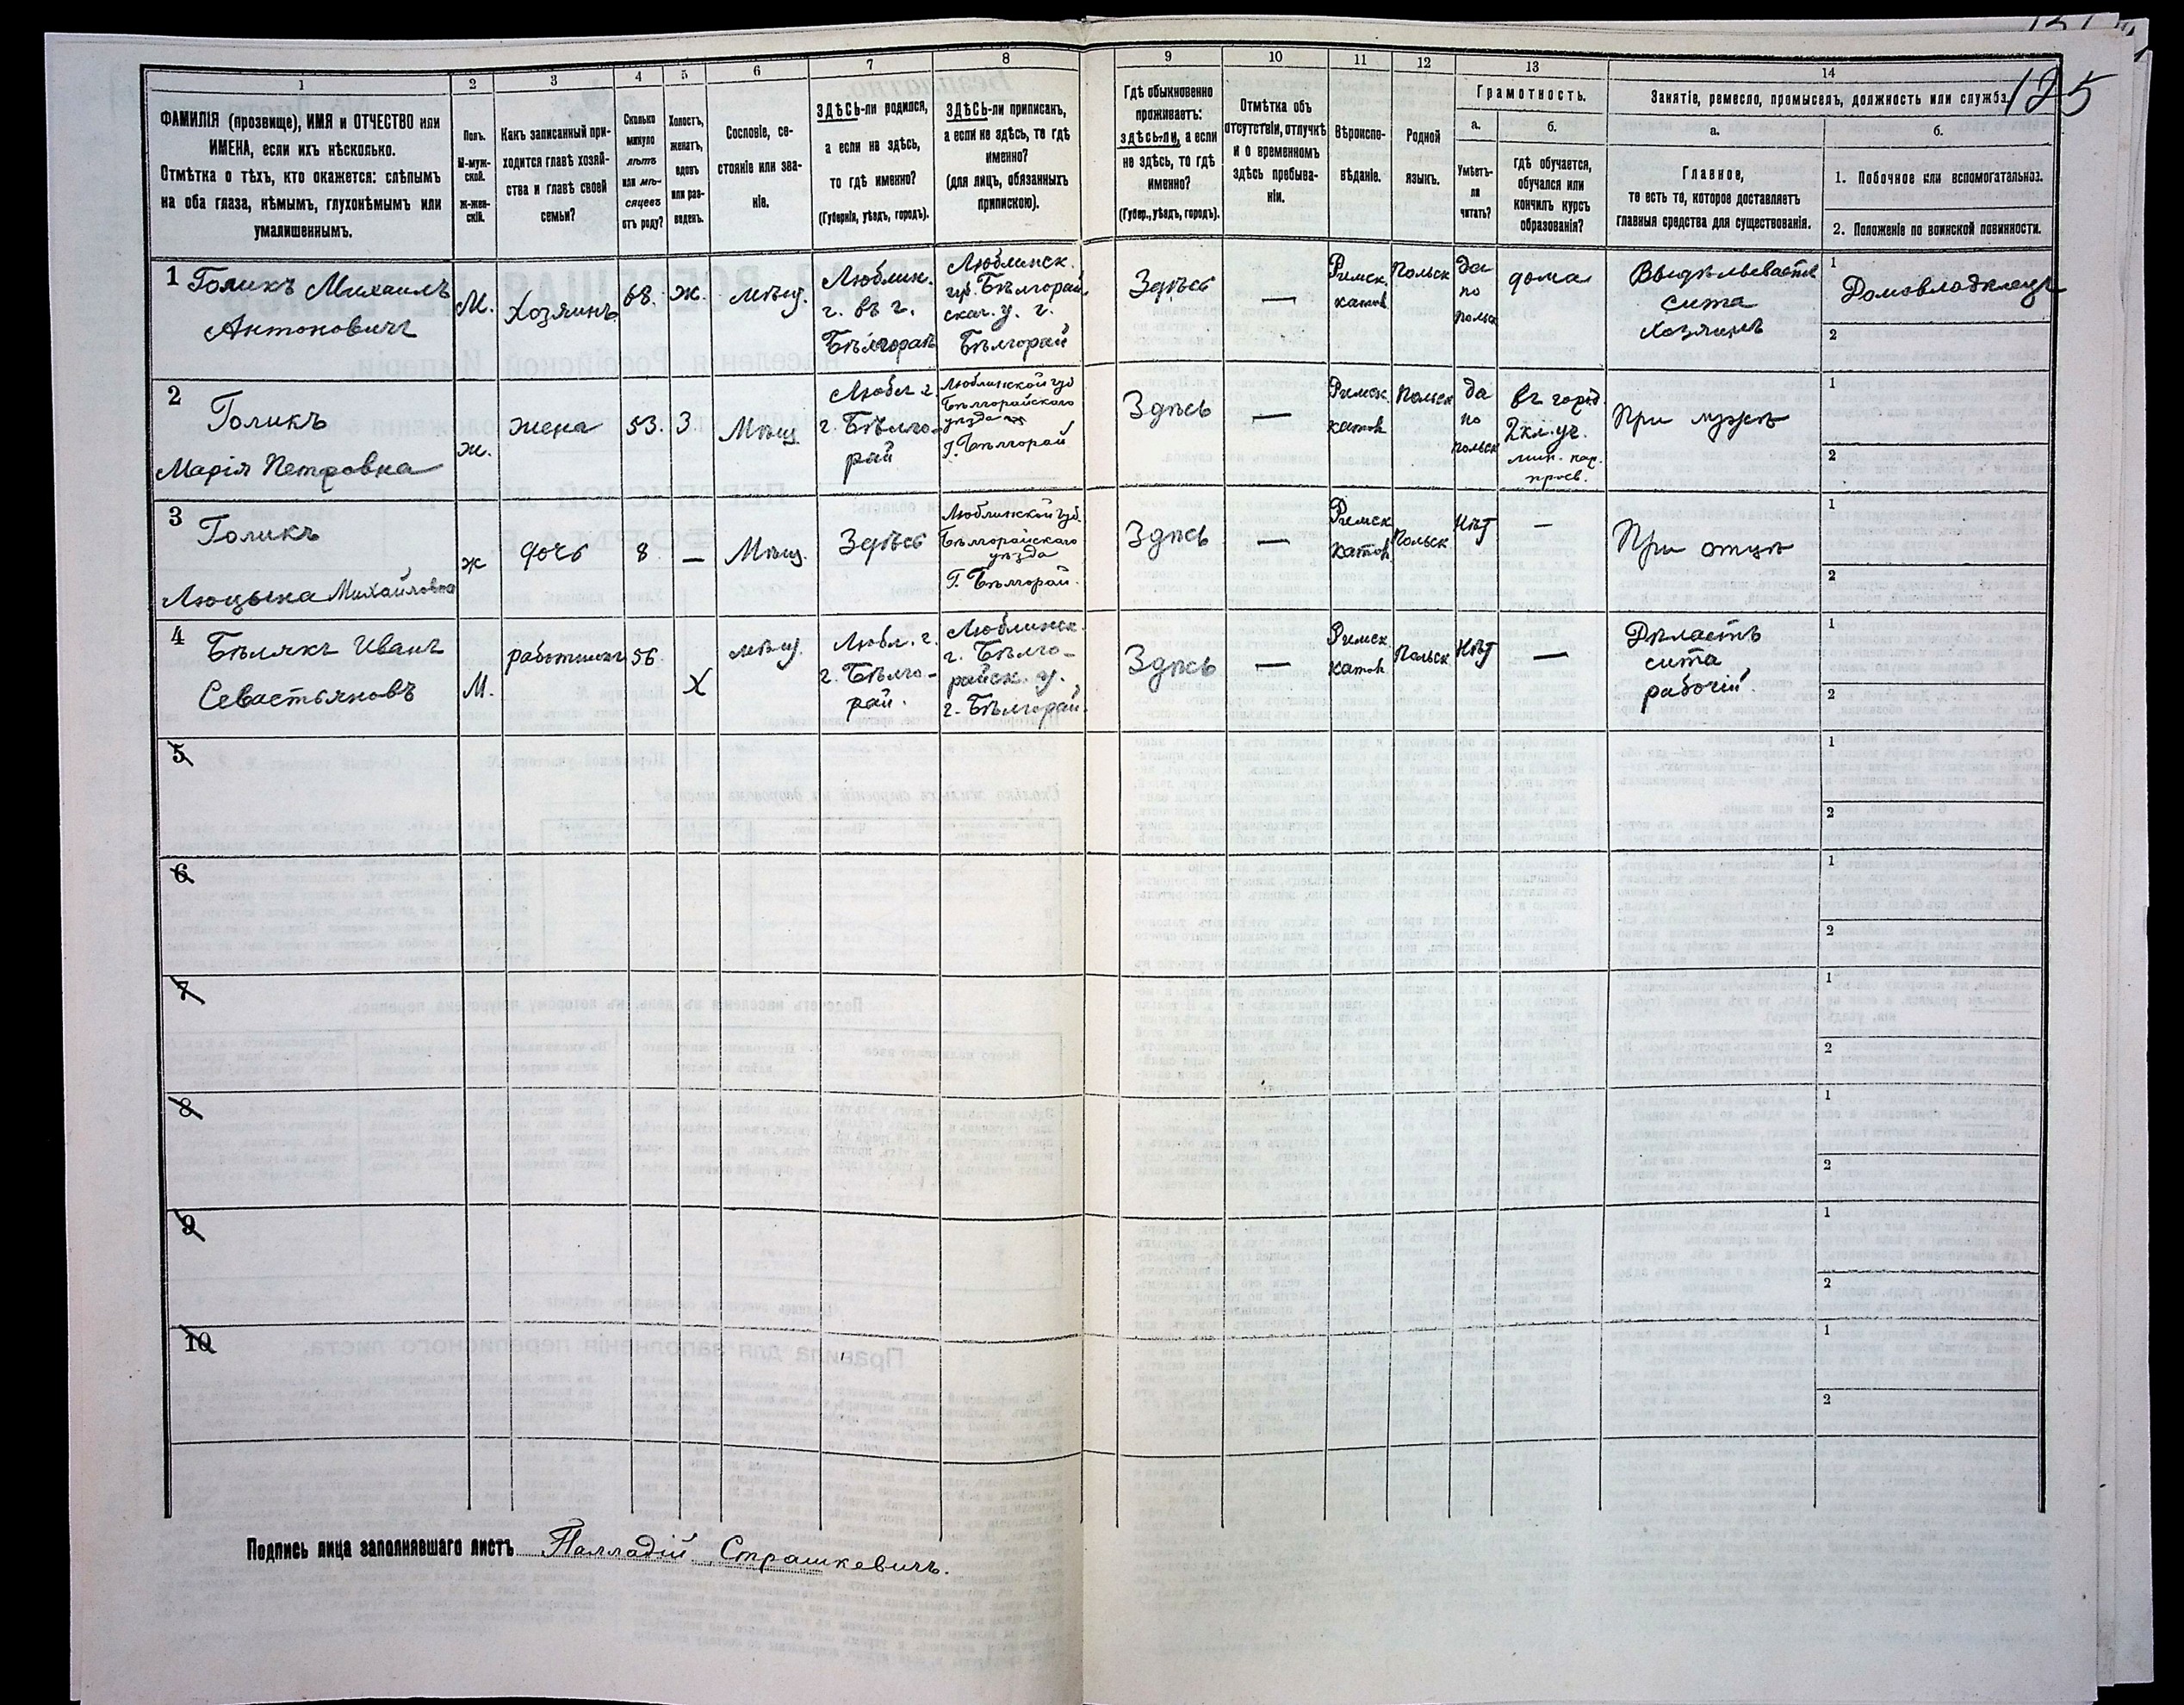 125
1
2
3
4
5
6
7
8
9
10
11
12
13
14
ФАМИЛІЯ (прозвище), ИМЯ и ОТЧЕСТВО или
ИМЕНА, если ихъ нѣсколько.
Отмѣтка о тѣхъ, кто окажется: слѣпымъ
на оба глаза, нѣмымъ, глухонѣмымъ или
умалишеннымъ.
Полъ.
М-муж-
ской.
Ж-жен-
скій.
Какъ записанный при-
ходится главѣ хозяй-
ства и главѣ своей
семьи?
Сколько
минуло
лѣтъ
или мѣ-
сяцевъ
отъ роду?
Холостъ,
женатъ,
вдовъ
или раз-
веденъ.
Сословіе, со-
стояніе или зва-
ніе.
ЗДѢСЬ-ли родился,
а если не здѣсь,
то гдѣ именно?
(Губернія, уѣздъ, городъ).
ЗДѢСЬ-ли приписанъ,
а если не здѣсь, то гдѣ
именно?
(для лицъ, обязанныхъ
припискою).
Гдѣ обыкновенно
проживаетъ:
здѣсь-ли, а если
не здѣсь, то гдѣ
именно?
(Губер., уѣздъ, городъ).
Отмѣтка объ
отсутствіи, отлучкѣ
и о временномъ
здѣсь пребыва-
ніи.
Вѣроиспо-
вѣданіе.
Родной
языкъ.
Грамотность.
а.
Умѣетъ-
ли
читать?
б.
гдѣ обучается,
обучался или
кончилъ курсъ
образованія?
Занятіе, ремесло, промыселъ, должность или служба.
а.
Главное,
то есть то, которое доставляетъ
главныя средства для существованія.
б.
1. Побочное или вспомогательное.
2. Положеніе по воинской повинности.
1 Голикъ Михаилъ
Антоновичъ
М.
Хозяинъ
68.
Ж.
мѣщ.
Люблин.
г. въ г.
Бѣлгораѣ
Люблинск.
гу. Бѣлгорай
скаг. у. г.
Бѣлгорай
Здѣсь
—
Римск.
катол.
Польск
да
по
польск
дома
Выдѣлываетъ
сита
хозяинъ
1
Домовладѣлецъ
2
2
Голикъ
Марія Петровна
ж.
жена
53.
З.
Мѣщ
Любл. г.
г. Бѣлго-
рай
Люблинской губ
Бѣлгорайскаго
уѣзда
Г. Бѣлгорай
Здѣсь
—
Римск.
катол
Польск
да
по
польск
въ город.
2 кл. уч.
мин. нар.
просв.
При мужѣ
1
2
3
Голикъ
Люцына Михайловна
ж
дочь
8
—
Мѣщ.
Здѣсь
Люблинской губ.
Бѣлгорайскаго
уѣзда
Г. Бѣлгорай.
Здѣсь
—
Римск
катол.
Польск
Нѣт
—
При отцѣ
1
2
4
Бѣлякъ Иванъ
Севастьяновъ
М.
работникъ
56.
Х
мѣщ.
Любл. г.
г. Бѣлго-
рай.
Люблинск.
г. Бѣлго-
райск. у.,
г. Бѣлгорай.
Здѣсь
—
Римск.
катол.
Польск
Нѣт
—
Дѣлаетъ
сита,
рабочій.
1
2
5
1
2
6
1
2
7
1
2
8
1
2
9
1
2
10
1
2
Подпись лица заполнявшаго листъ Палладій Страшкевичъ.